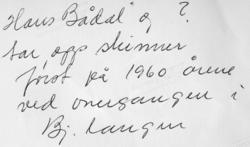 Hans Bådal og ?
tar opp skinner
først på 1960 årene
ved overgangen i
Bj. tangen